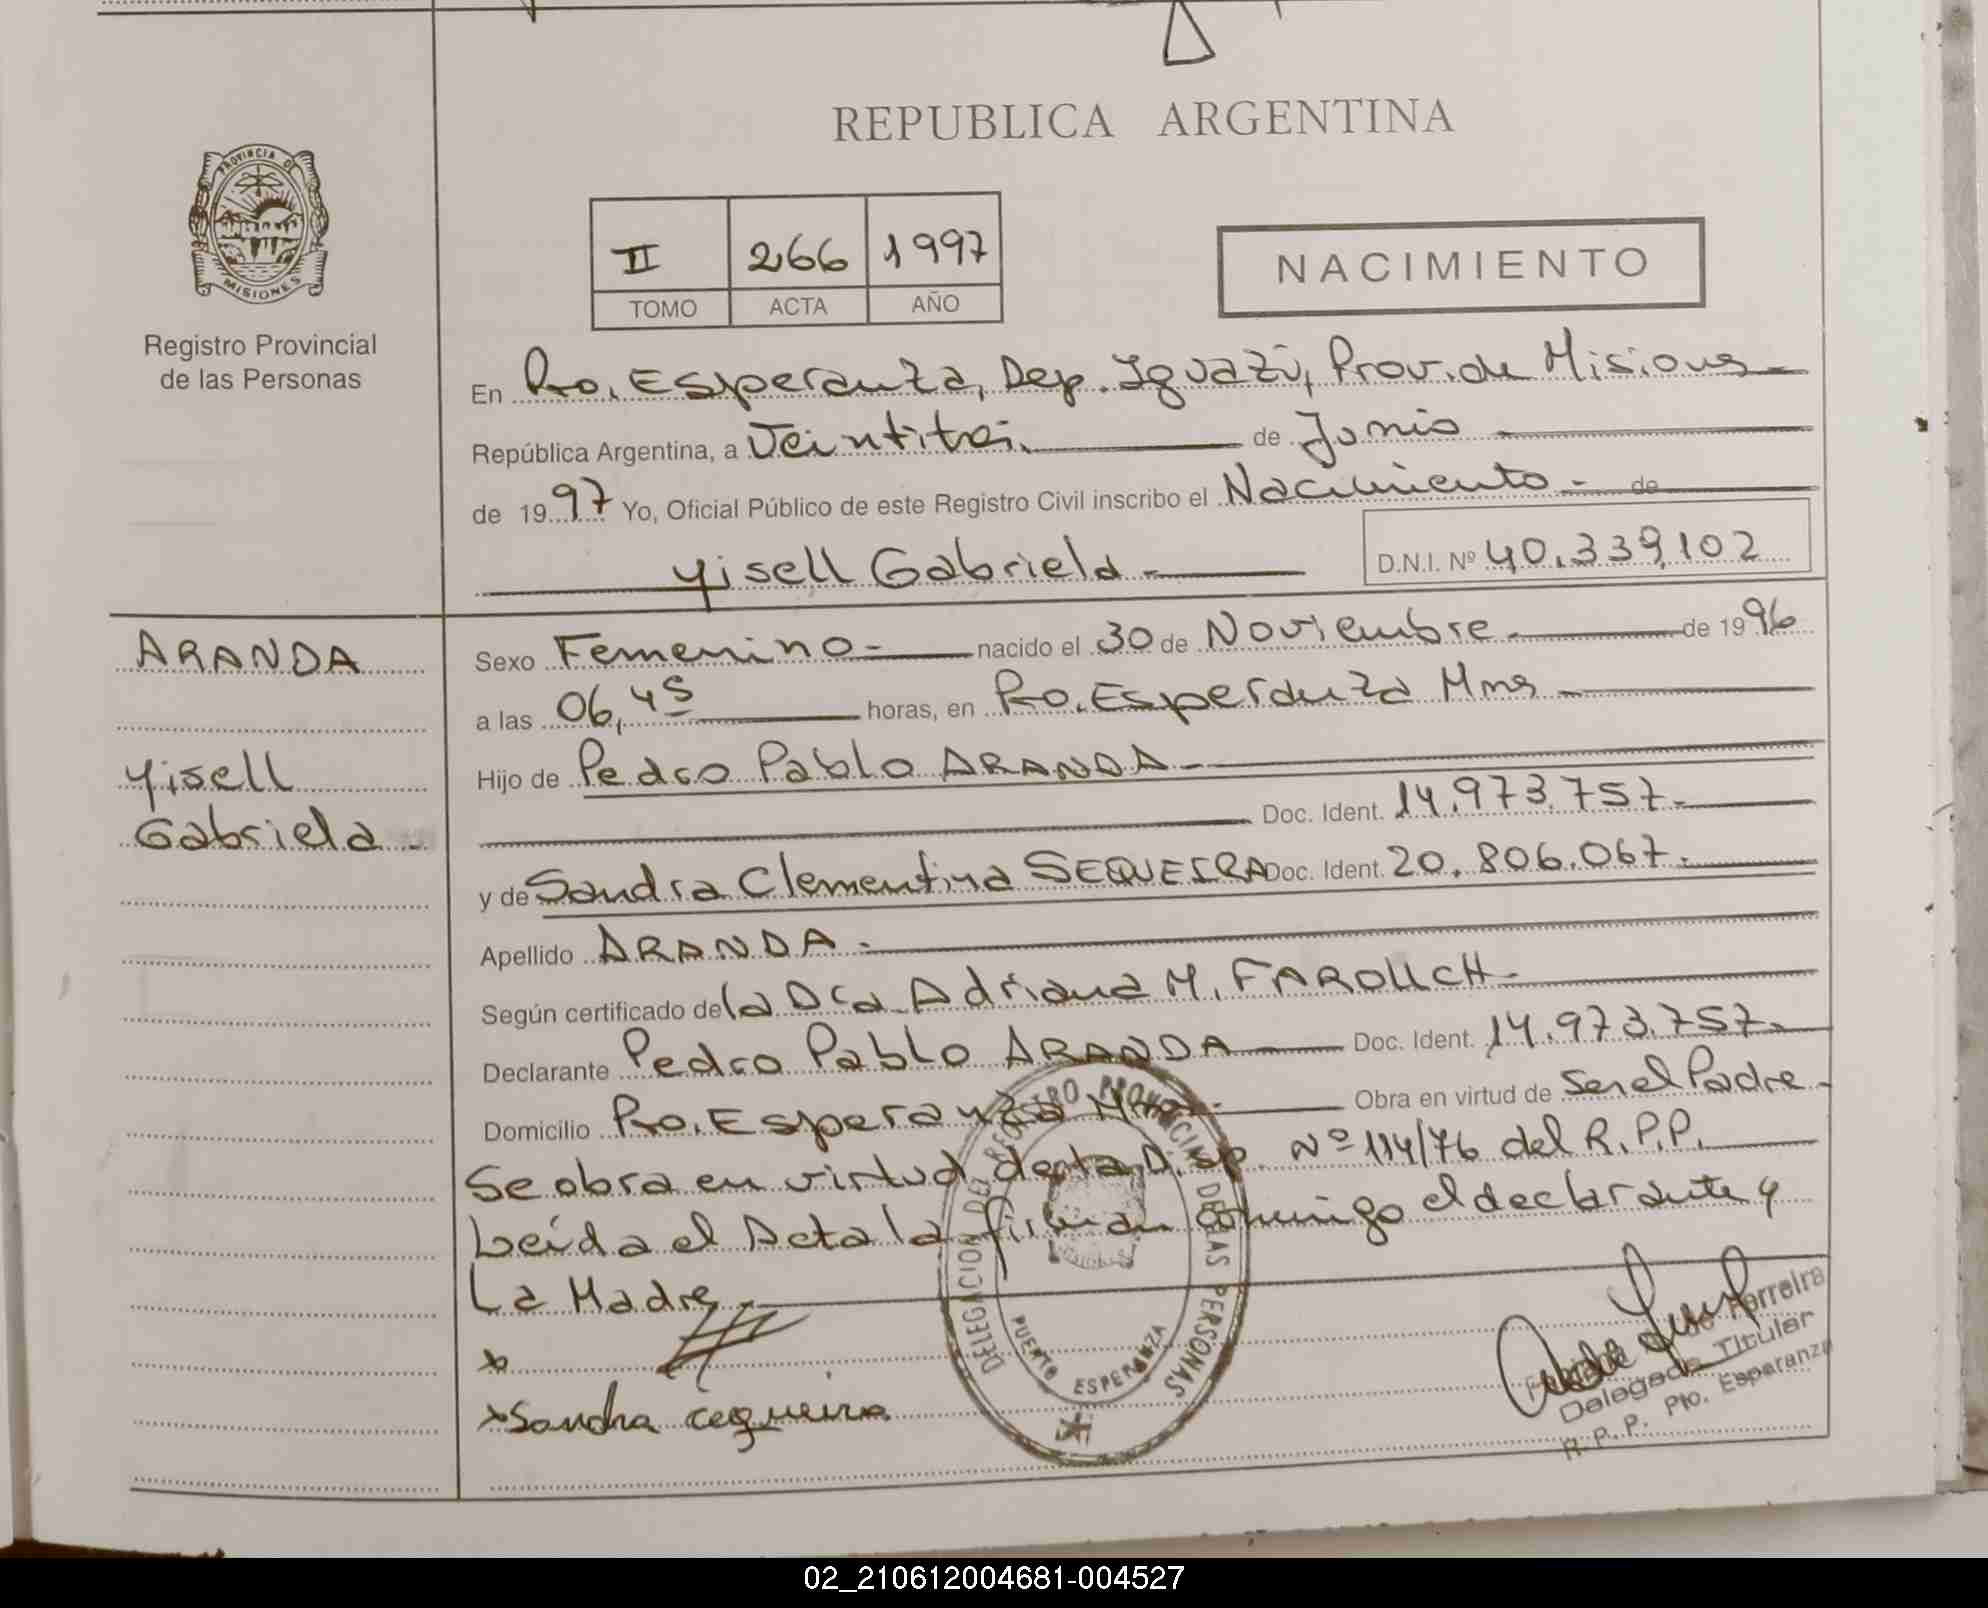 REPUBLICA ARGENTINA
PROVINCIA DE
MISIONES
Registro Provincial
de las Personas
II 266 1997
TOMO ACTA AÑO
NACIMIENTO
En Pto. Esperanza, Dep. Iguazú, Prov. de Misiones
República Argentina, a Veintitrés de Junio
de 1997 Yo, Oficial Público de este Registro Civil inscribo el Nacimiento - de
Yisell Gabriela - D.N.I. Nº 40.339,102
ARANDA
Yisell
Gabriela -
Sexo Femenino - nacido el 30 de Noviembre - de 1996
a las 06,45 horas, en Pto. Esperanza Mnes -
Hijo de Pedro Pablo ARANDA -
Doc. Ident. 14.973.757.-
y de Sandra Clementina SEQUEIRA Doc. Ident. 20.806.067.-
Apellido ARANDA.-
Según certificado de la Dra. Adriana M. -
Declarante Pedro Pablo ARANDA Doc. Ident. 14.973.757.-
Domicilio Pto. Esperanza Obra en virtud de Ser el Padre -
Se obra en virtud de la Disp. Nº 114/76 del R.P.P.
Leída el Acta la firman conmigo el declarante y
La Madre.-
x
x Sandra cequeira
DELEGACION DEL REGISTRO PROVINCIAL DE LAS PERSONAS
PUERTO ESPERANZA
Ferreira
Delegado Titular
R. P. P. Pto. Esperanza
02_210612004681-004527